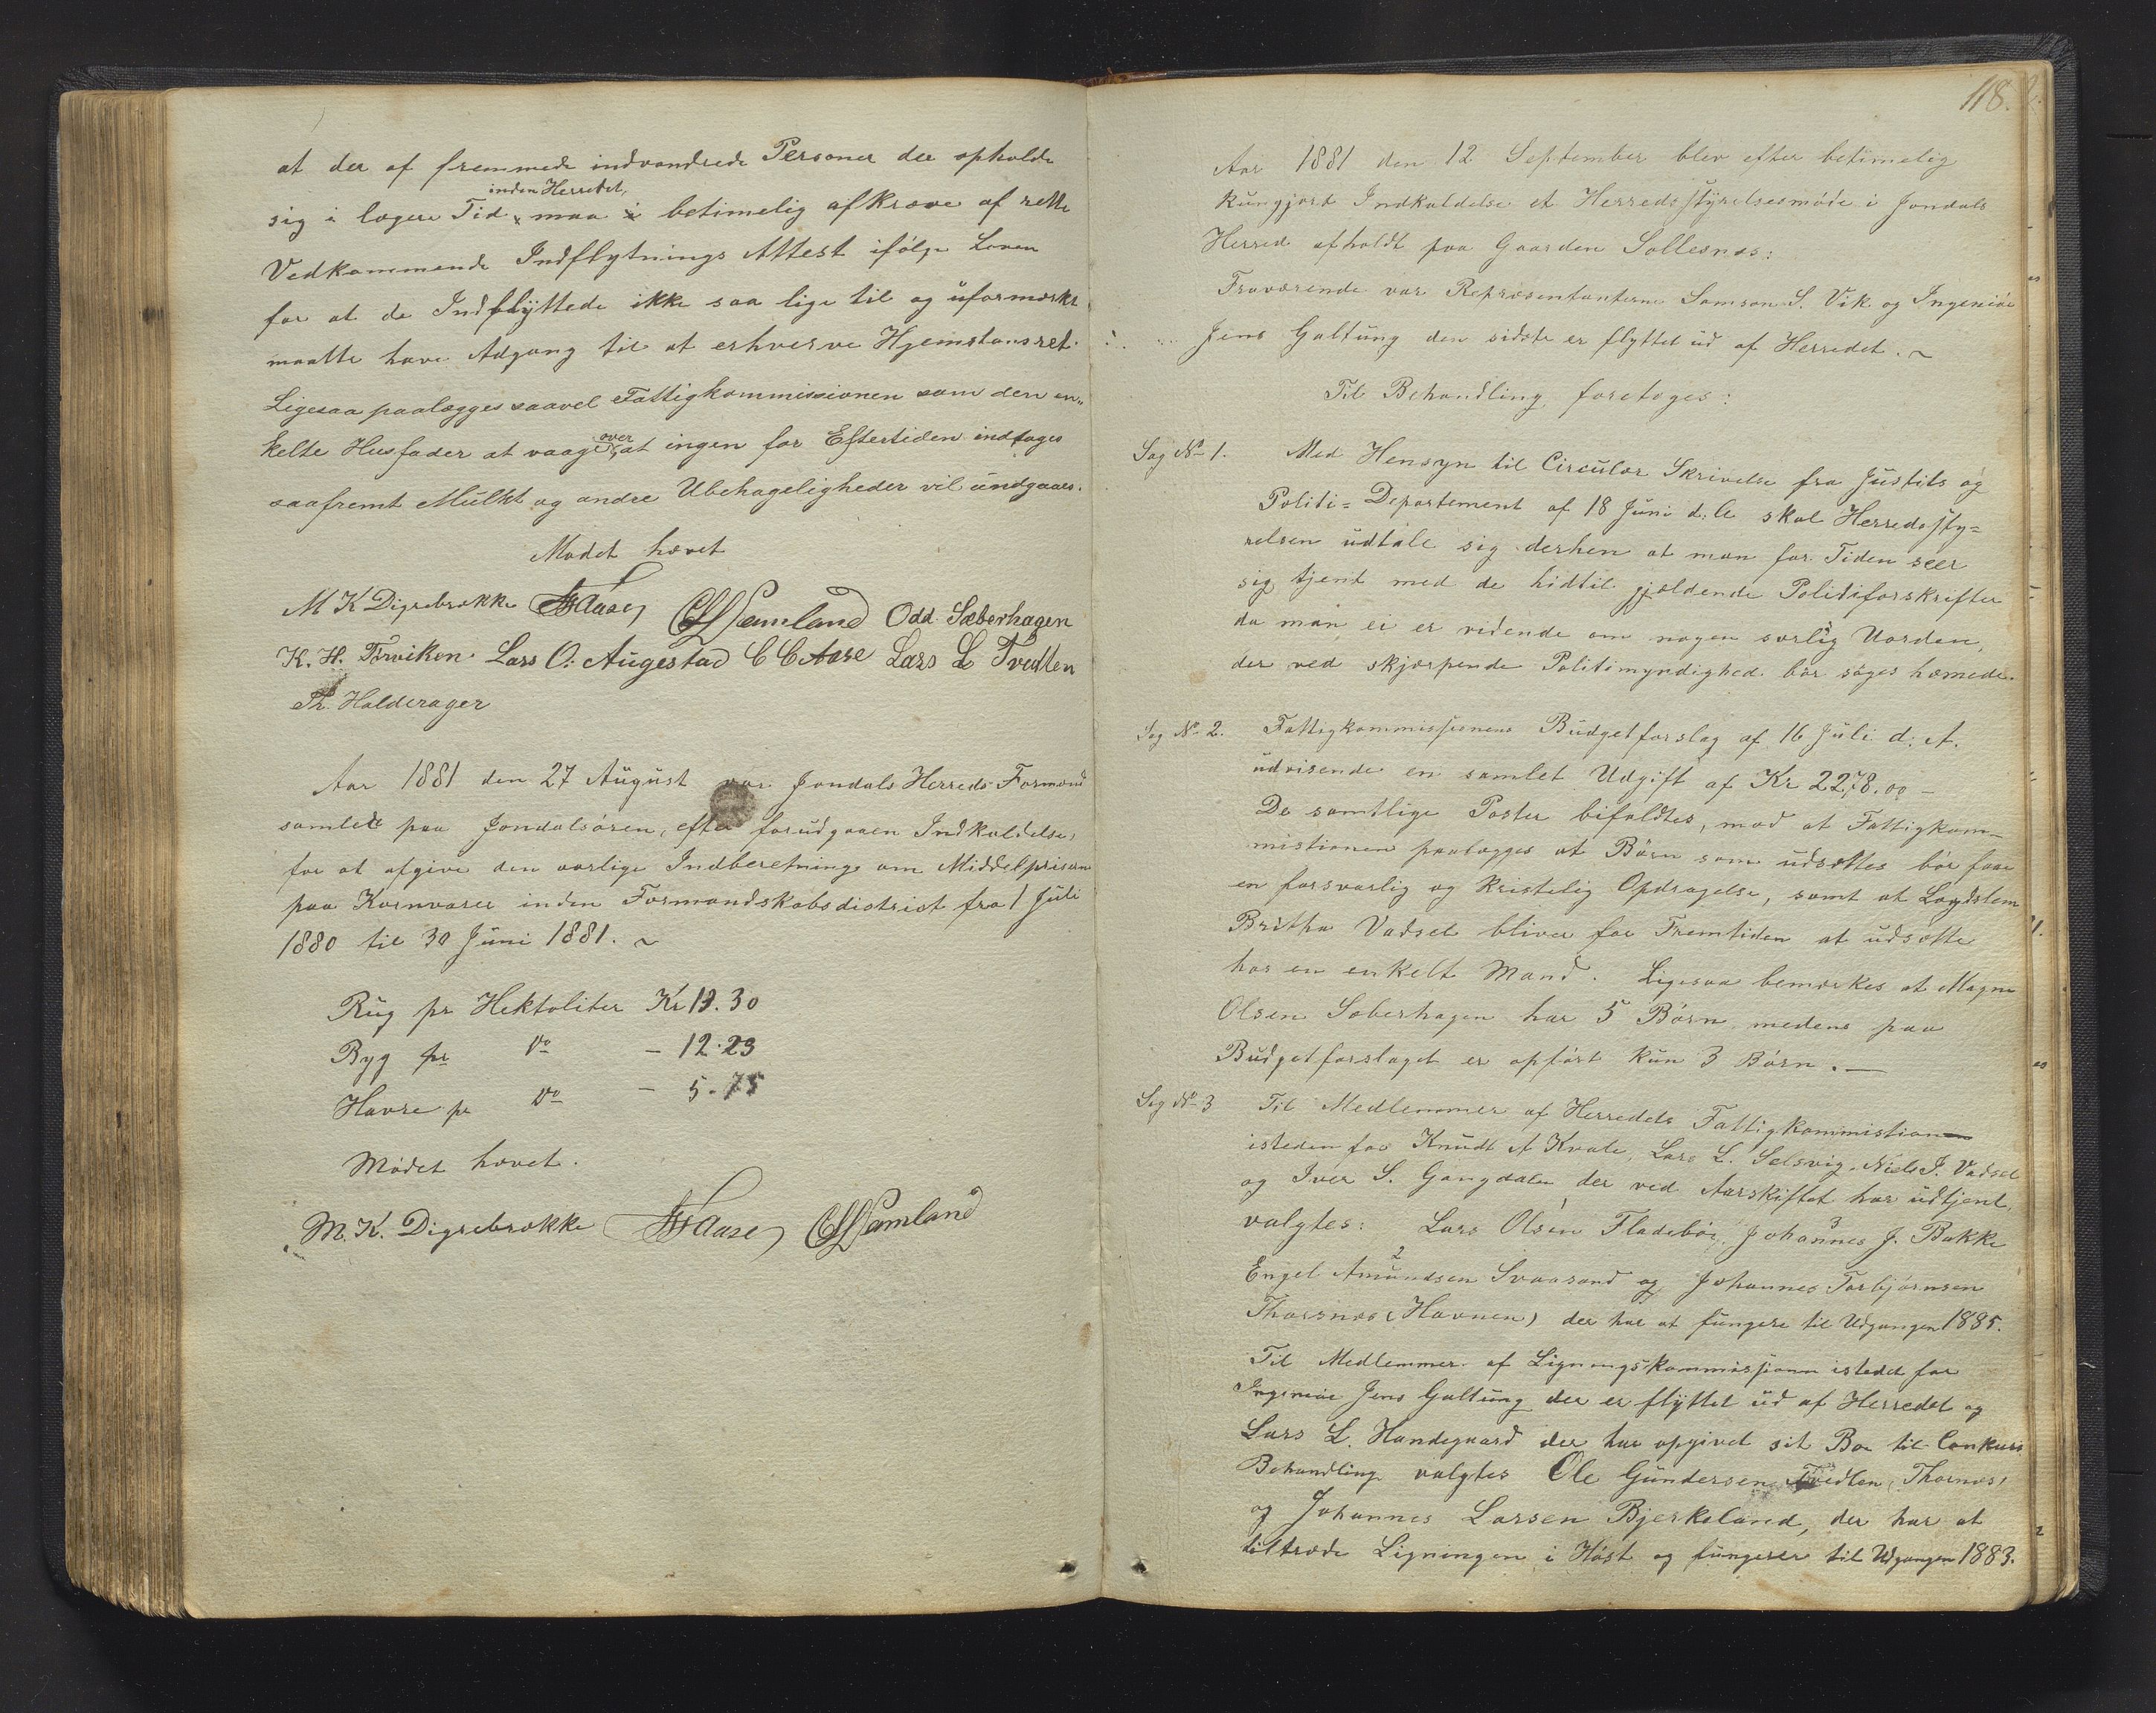 at der af fremmede indvandrede Personer der opholde
inden Herredet,
sig i lægere Tid maa i betimelig afkræve af rette
Vedkommende Indflytnings Attest ifølge Loven
for at de Indflyttede ikke saa lige til og uformærkt
maatte have Adgang til at erhverve Hjemstansret.
Ligesaa paalægges saavel Fattigkommissionen som den en„
over
kelte Husfader at vaage at ingen for Eftertiden indtages
saafremt Mulkt og andre Ubehageligheder vil undgaaes.
Mødet hævet
M K Digrebrække Aase Samland Odd Sæberhagen
K. H. Torviken Lars O. Augestad C C Aase Lars L Tvedten
Th. Halderager
Aar 1881 den 27 August var Jondals Herreds Formænd
samlede paa Jondalsøren, efter forudgaaen Indkaldelse,
for at afgive den aarlige Indberetning om Middelprisen
paa Kornvarer inden Formandskabsdistrict fra 1 Juli
1880 til 30 Juni 1881. ~
Rug pr Hektoliter Kr 13.30
Byg pr do – 12.23
Havre pr do – 5.75
Mødet hævet.
M. K. Digrebrække Aase Samland
118.
Aar 1881 den 12 September blev efter betimelig
kungjord Indkaldelse et Herredsstyrelsesmøde i Jondals
Herred afholdt paa Gaarden Sollesnæs:
Fraværende var Repræsentanterne Samson S. Vik og Ingeniør
Jens Galtung den sidste er flyttet ud af Herredet. ~
Til Behandling foretoges:
Sag No 1. Med Hensyn til Circulær Skrivelse fra Justits og
Politi=Departement af 18 Juni d. A. skal Herredssty=
relsen udtale sig derhen at man for Tiden seer
sig tjent med de hidtil gjældende Politiforskrifter
da man ei er vidende om nogen særlig Uorden,
der ved skjærpende Politimyndighed bør søges hæmede.
Sag No 2. Fattigkommissionens Budgetforslag af 16 Juli d. A.
udvisende en samlet Udgift af Kr 2278.00 –
De samtlige Poster bifaldtes, mod at Fattigkom-
mistionen paalægges at Børn som udsættes bør faae
en forsvarlig og kristelig Opdragelse, samt at Lægdslem
Britha Vadsel bliver for Fremtiden at udsætte
hos en enkelt Mand. Ligesaa bemærkes at Magne
Olsen Sæberhagen har 5 Børn medens paa
Budgetforslaget er opført kun 3 Børn. —
Sag No 3 Til Medlemmer af Herredets Fattigkommistion
isteden for Knudt A Kvale, Lars L. Selsvig, Niels J. Vadsel
og Iver S. Gangdalen der ved Aarskiftet har udtjent,
valgtes: Lars Olsen Fladebøe, Johannes J. Bakke
3
2
Engel Amundsen Svaasand og Johannes Torbjørnsen
Thorsnæs (Havnen) der har at fungere til Udgangen 1885.
Til Medlemmer af Ligningskommissionen istedet for
Ingeniør Jens Galtung der er flyttet ud af Herredet og
Lars L. Handegaard der har opgivet sit Boe til Conkurs
Behandling valgtes Ole Gundersen Tvedten, Thornæs,
og Johannes Larsen Bjerkeland, der har at
tiltræde Ligningen i Høst og fungerer til Udgangen 1883.